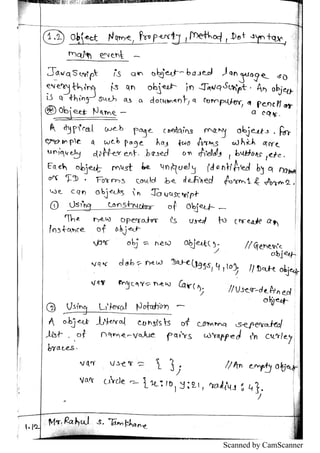 1.2 Object Name, Property, Method, Dot syntax,
main event -
JavaScript is an object-based language so
everything is an object in JavaScript. An object
is a thing such as a document, a computer, a pencil or
a car.
Object Name -
A typical web page contains many objects. For
example a web page has two forms which are
uniquely different based on fields, buttons, etc.
Each object must be uniquely identified by a name
or ID. Forms could be defined form1 & form2.
we can objects in Javascript
① Using constructor of Object -
The new operator is used to create an
Instance of object
var obj = new object(); //Generic
object
var dob = new Date(1995, 4, 10); // Date object
var mycar = new Car(); //User-defined
object
② Using Literal Notation -
A object literal consists of comma seperated
list of name-value pairs wrapped in curley
braces.
var user = { }; //An empty object
var circle = { x:10, y:21, radius : 4};
1.12 Mr. Rahul S. Tamkhane
Scanned by CamScanner